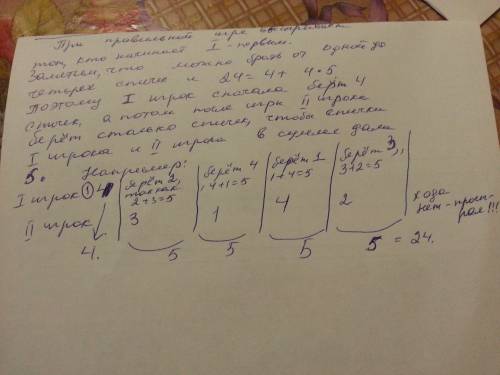 При правильной игре выигрывает
тот, кто начинает I - первым.
Заметим, что можно брать от одной до
четырех спичек и 24 = 4 + 4·5
Поэтому I игрок сначала берёт 4
спичек, а потом после игры II игрока
берёт столько спичек, чтобы спички
I игрока и II игрока в сумме дали
5. Например:
I игрок ① 4 берёт 2, так как 2+3=5 берёт 4, 4+1=5 берёт 1, 1+4=5 берёт 3, 3+2=5
II игрок 3 1 4 2 хода нет - проиграл!!!
4. 5 5 5 5 = 24.